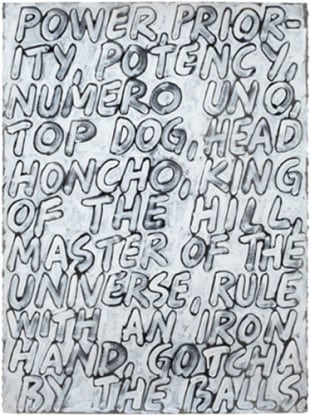 POWER, PRIOR-
ITY, POTENCY,
NUMERO UNO,
TOP DOG, HEAD
HONCHO, KING
OF THE HILL,
MASTER OF THE
UNIVERSE, RULE
WITH AN IRON
HAND, GOTCHA
BY THE BALLS.